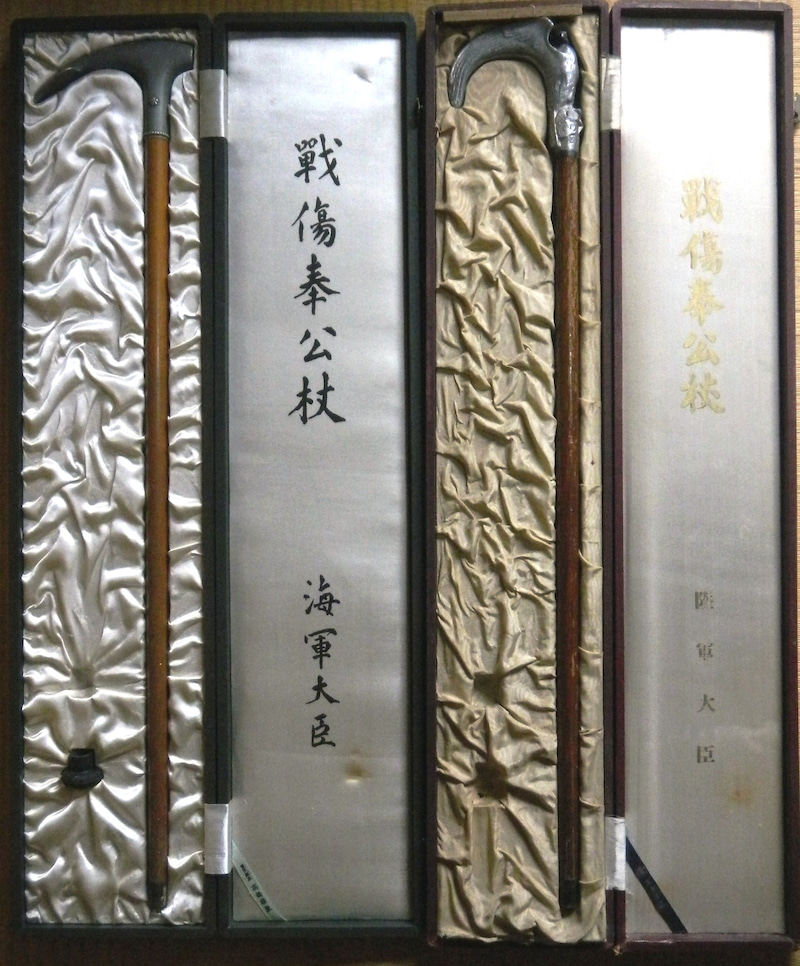 戰傷奉公杖
海軍大臣
戰傷奉公杖
陸軍大臣